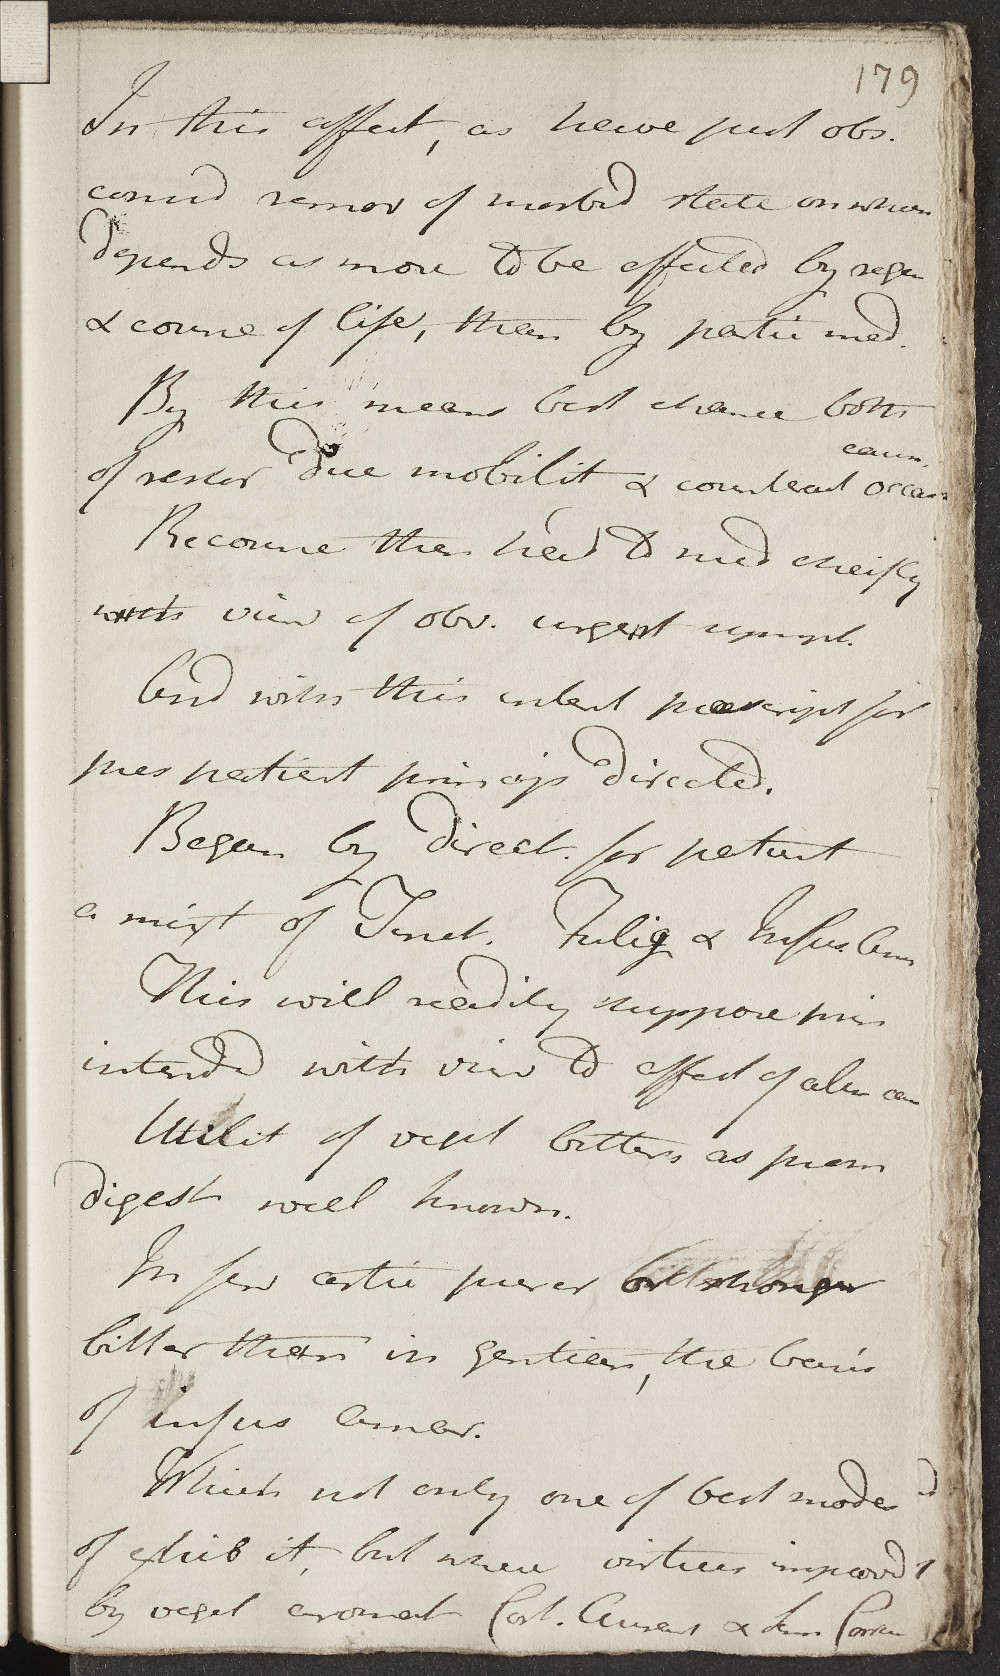 179
In this affect, as have just obs.
consid remov of morbid state on whic
depends as more to be effected by regi
& course of life, than by partic med.
By this means best chance both
caus.
of restor due mobilit & counteract occas
Recourse then had to med cheifly
with view of obv. urgent sympt.
And with this intent prescript for
pres patient princip directed.
Began by direct. for patient
a mixt of Tinct. Fulig & Infus. Am
This will readily suppose prin
intended with view to affect of alim can
Utilit of veget bitters as prom
digest well known.
In few artic purer or stronger
bitter than in gentian, the basis
of infus amar.
Which not only one of best modes
of exhib it, but where virtues improvd
by veget aromat Cort. Aurant & Sem Corian